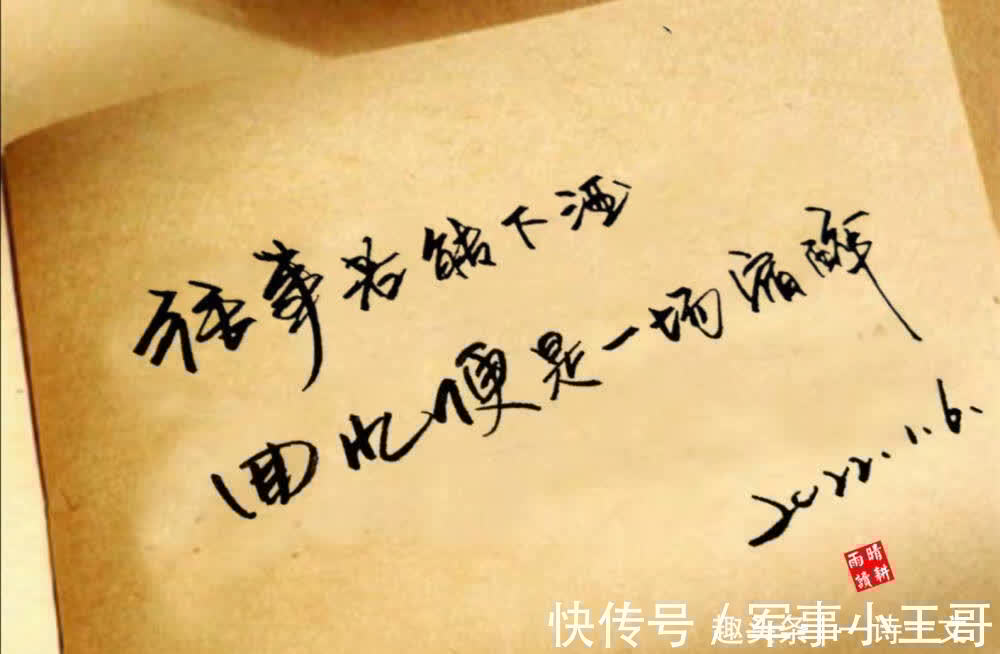 往事若能下酒
回忆便是一场宿醉
2022.1.6.
晴耕
雨讀
快传号/军事小王哥
趣头条 一诗一文